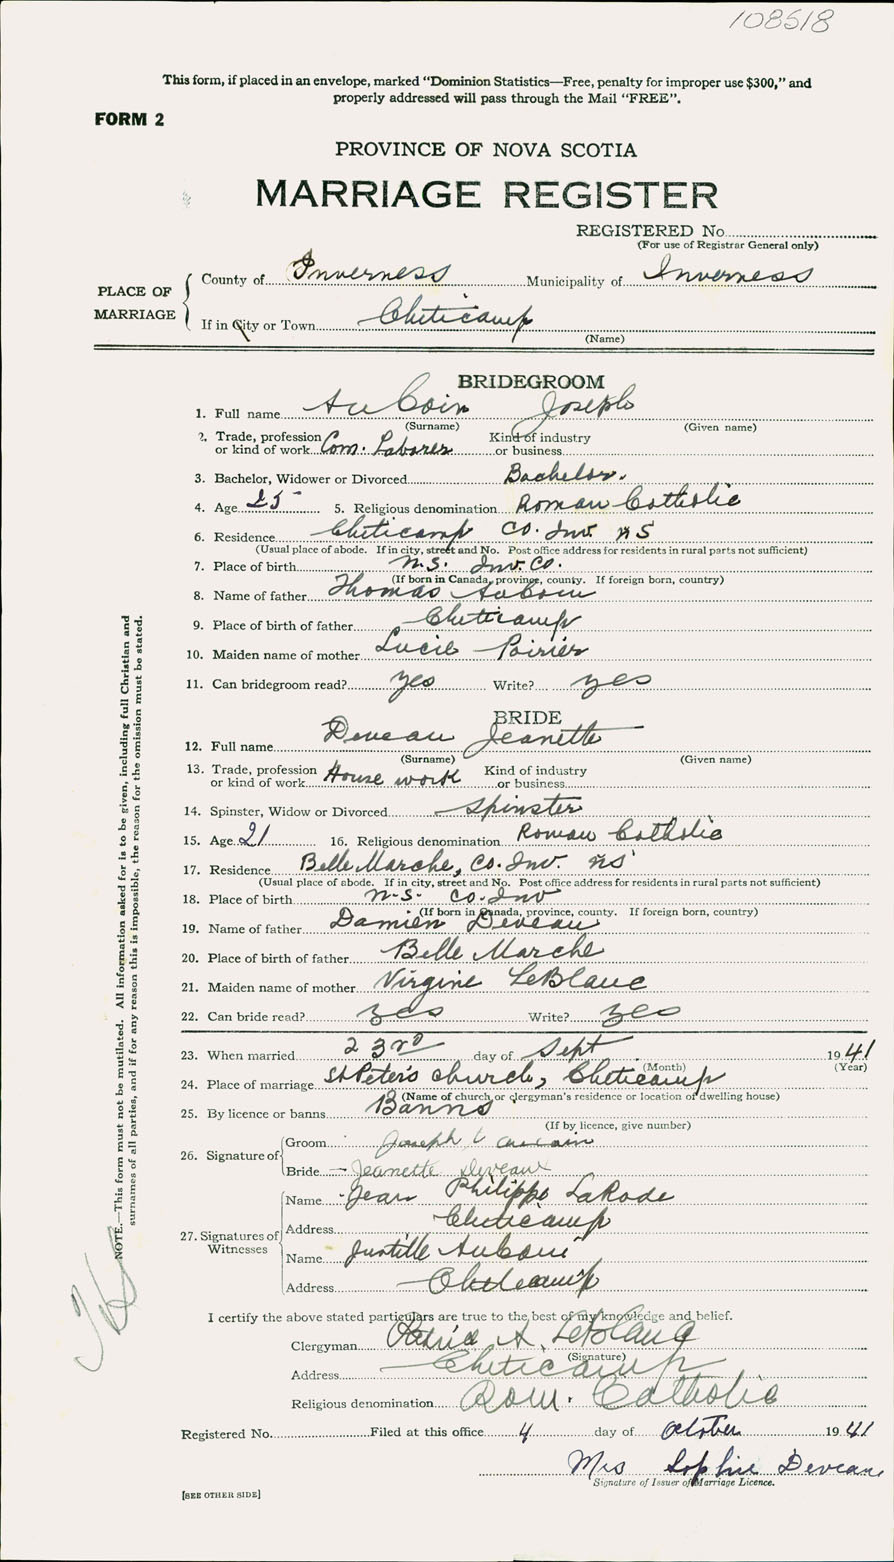 108518
This form, if placed in an envelope, marked "Dominion Statistics—Free, penalty for improper use $300," and
properly addressed will pass through the Mail "FREE".
FORM 2
PROVINCE OF NOVA SCOTIA
MARRIAGE REGISTER
REGISTERED No.
(For use of Registrar General only)
PLACE OF MARRIAGE
County of Inverness Municipality of Inverness
If in City or Town Cheticamp
(Name)
BRIDEGROOM
1. Full name AuCoin Joseph
(Surname) (Given name)
2. Trade, profession or kind of work Com. Laborer Kind of industry or business
3. Bachelor, Widower or Divorced Bachelor.
4. Age 25 5. Religious denomination Roman Catholic
6. Residence Cheticamp Co. Inv. NS
(Usual place of abode. If in city, street and No. Post office address for residents in rural parts not sufficient)
7. Place of birth N.S. Inv. Co.
(If born in Canada, province, county. If foreign born, country)
8. Name of father Thomas AuCoin
9. Place of birth of father Cheticamp
10. Maiden name of mother Lucie Poirier
11. Can bridegroom read? yes Write? yes
BRIDE
12. Full name Deveau Jeanette
(Surname) (Given name)
13. Trade, profession or kind of work House work Kind of industry or business
14. Spinster, Widow or Divorced Spinster
15. Age 21 16. Religious denomination Roman Catholic
17. Residence Belle Marche, Co. Inv. NS
(Usual place of abode. If in city, street and No. Post office address for residents in rural parts not sufficient)
18. Place of birth N.S. Co. Inv
(If born in Canada, province, county. If foreign born, country)
19. Name of father Damien Deveau
20. Place of birth of father Belle Marche
21. Maiden name of mother Virginie LeBlanc
22. Can bride read? yes Write? yes
23. When married 23rd day of Sept 1941
(Month) (Year)
24. Place of marriage St Peter's church, Cheticamp
(Name of church or clergyman's residence or location of dwelling house)
25. By licence or banns Banns
(If by licence, give number)
26. Signature of
Groom Joseph
Bride Jeanette Deveau
27. Signatures of Witnesses
Name Jean Philippe LaRade
Address Cheticamp
Name AuCoin
Address Cheticamp
I certify the above stated particulars are true to the best of my knowledge and belief.
Clergyman Patrice A. LeBlanc
(Signature)
Address Cheticamp
Religious denomination Rom. Catholic
Registered No. Filed at this office 4 day of October 1941
Mrs Sophie Deveau
Signature of Issuer of Marriage Licence.
[SEE OTHER SIDE]
NOTE.—This form must not be mutilated. All information asked for is to be given, including full Christian and
surnames of all parties, and if for any reason this is impossible, the reason for the omission must be stated.